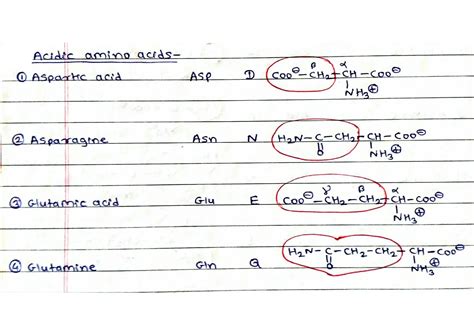 Acidic amino acids-
① Aspartic acid Asp D COO⊖-CH₂-CH-COO⊖
β α
NH₃⊕
② Asparagine Asn N H₂N-C-CH₂-CH-COO⊖
O NH₃⊕
③ Glutamic acid Glu E COO⊖-CH₂-CH₂-CH-COO⊖
γ β α
NH₃⊕
④ Glutamine Gln Q H₂N-C-CH₂-CH₂-CH-COO⊖
O NH₃⊕